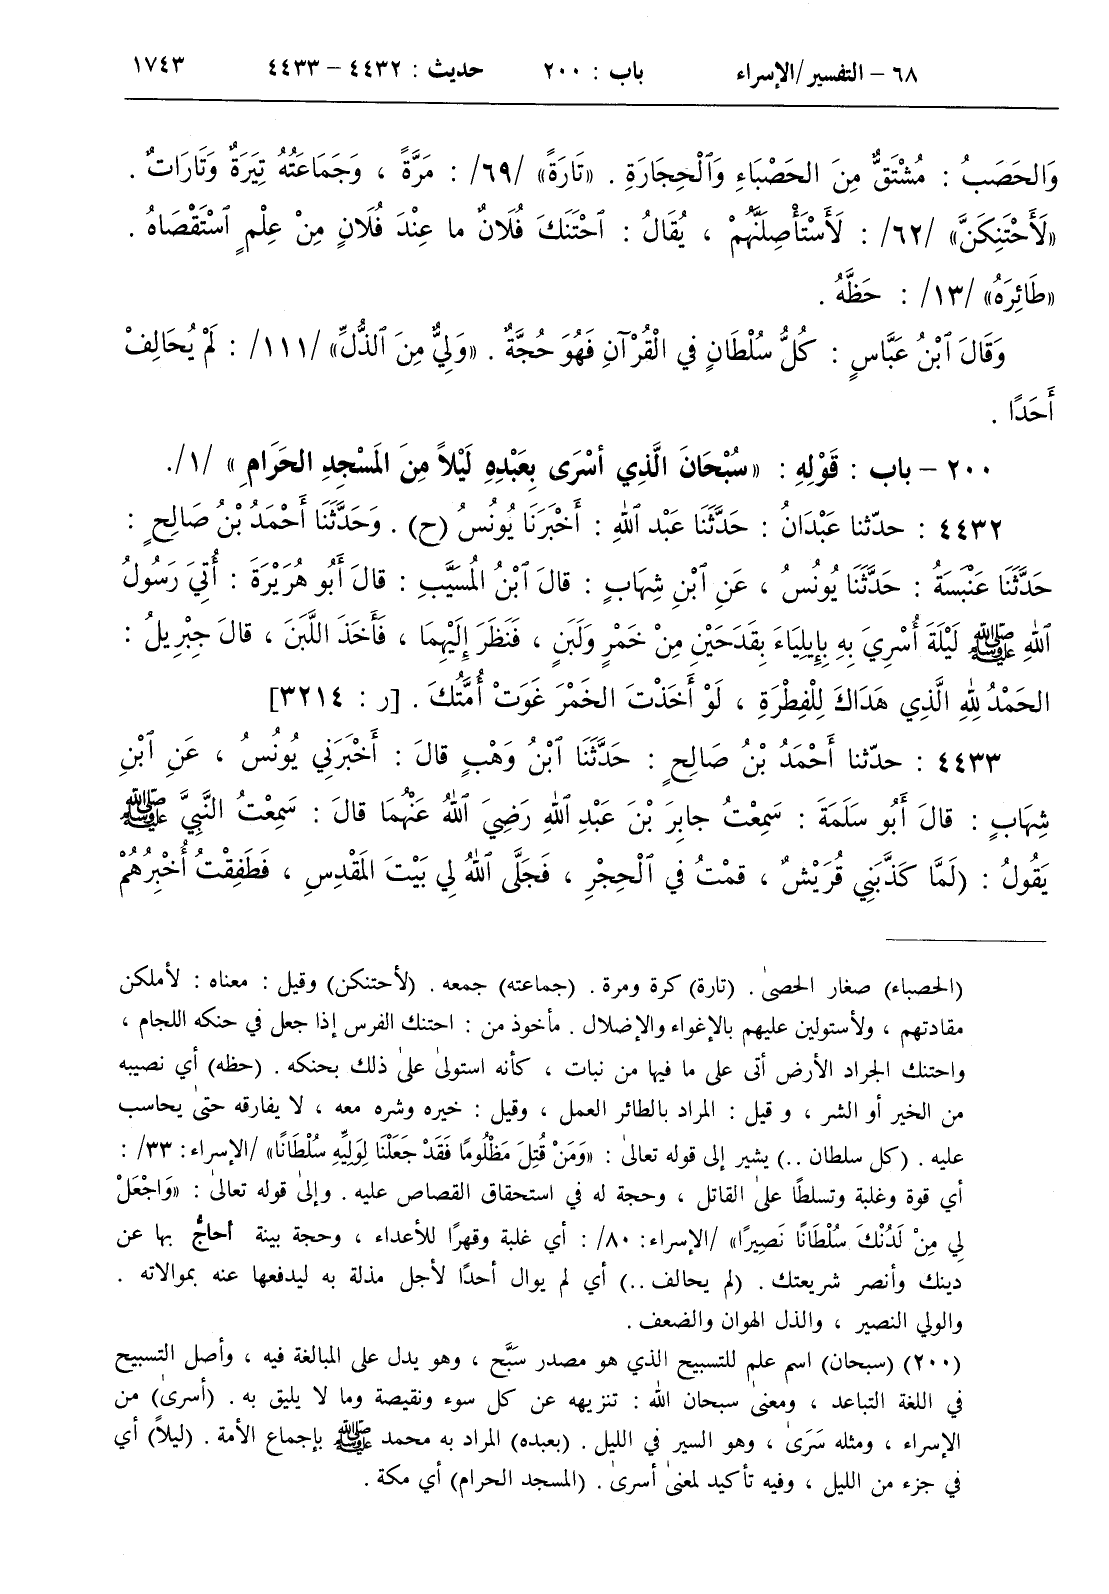 ٦٨ - التفسير/الإسراء باب : ٢٠٠ حديث : ٤٤٣٢ - ٤٤٣٣ ١٧٤٣
وَالحَصَبُ : مُشْتَقٌّ مِنَ الحَصْبَاءِ وَٱلْحِجَارَةِ . «تَارَةً» /٦٩/ : مَرَّةً ، وَجَمَاعَتُهُ تِيَرَةٌ وَتَارَاتٌ .
«لَأَحْتَنِكَنَّ» /٦٢/ : لَأَسْتَأْصِلَنَّهُمْ ، يُقَالُ : ٱحْتَنَكَ فُلَانٌ ما عِنْدَ فُلَانٍ مِنْ عِلْمٍ ٱسْتَقْصَاهُ .
«طَائِرَهُ» /١٣/ : حَظَّهُ .
وَقَالَ ٱبْنُ عَبَّاسٍ : كُلُّ سُلْطَانٍ في الْقُرْآنِ فَهُوَ حُجَّةٌ . «وَلِيٌّ مِنَ ٱلذُّلِّ» /١١١/ : لَمْ يُحَالِفْ
أَحَدًا .
٢٠٠ - باب : قَوْلِهِ : «سُبْحَانَ الَّذِي أسْرَى بِعَبْدِهِ لَيْلاً مِنَ المَسْجِدِ الحَرَامِ» /١/.
٤٤٣٢ : حدّثنا عَبْدَانُ : حَدَّثَنَا عَبْد ٱللهِ : أَخْبَرَنَا يُونُسُ (ح) . وَحَدَّثَنَا أَحْمَدُ بْنُ صَالِحٍ :
حَدَّثَنَا عَنْبَسَةُ : حَدَّثَنَا يُونُسُ ، عَنِ ٱبْنِ شِهَابٍ : قالَ ٱبْنُ المُسَيَّبِ : قالَ أَبُو هُرَيْرَةَ : أُتِيَ رَسُولُ
ٱللهِ ﷺ لَيْلَةَ أُسْرِيَ بِهِ بِإِيلِيَاءَ بِقَدَحَيْنِ مِنْ خَمْرٍ وَلَبَنٍ ، فَنَظَرَ إِلَيْهِمَا ، فَأَخَذَ اللَّبَنَ ، قالَ جِبْرِيلُ :
الحَمْدُ لِلهِ الَّذِي هَدَاكَ لِلْفِطْرَةِ ، لَوْ أَخَذْتَ الخَمْرَ غَوَتْ أُمَّتُكَ . [ر : ٣٢١٤]
٤٤٣٣ : حدّثنا أَحْمَدُ بْنُ صَالِحٍ : حَدَّثَنَا ٱبْنُ وَهْبٍ قالَ : أَخْبَرَنِي يُونُسُ ، عَنِ ٱبْنِ
شِهَابٍ : قالَ أَبُو سَلَمَةَ : سَمِعْتُ جابِرَ بْنَ عَبْدِ ٱللهِ رَضِيَ ٱللهُ عَنْهُمَا قالَ : سَمِعْتُ النَّبِيَّ ﷺ
يَقُولُ : (لَمَّا كَذَّبَنِي قُرَيْشٌ ، قمْتُ في ٱلْحِجْرِ ، فَجَلَّى ٱللهُ لِي بَيْتَ المَقْدِسِ ، فَطَفِقْتُ أُخْبِرُهُمْ
(الحصباء) صغار الحصىٰ . (تارة) كرة ومرة . (جماعته) جمعه . (لأحتنكن) وقيل : معناه : لأملكن
مقادتهم ، ولأستولين عليهم بالإغواء والإضلال . مأخوذ من : احتنك الفرس إذا جعل في حنكه اللجام ،
واحتنك الجراد الأرض أتى على ما فيها من نبات ، كأنه استولىٰ علىٰ ذلك بحنكه . (حظه) أي نصيبه
من الخير أو الشر ، و قيل : المراد بالطائر العمل ، وقيل : خيره وشره معه ، لا يفارقه حتىٰ يحاسب
عليه . (كل سلطان ..) يشير إلى قوله تعالىٰ : «وَمَنْ قُتِلَ مَظْلُومًا فَقَدْ جَعَلْنَا لِوَلِيِّهِ سُلْطَانًا» /الإسراء: ٣٣/ :
أي قوة وغلبة وتسلطًا علىٰ القاتل ، وحجة له في استحقاق القصاص عليه . وإلىٰ قوله تعالىٰ : «وَاجْعَلْ
لِي مِنْ لَدُنْكَ سُلْطَانًا نَصِيرًا» /الإسراء: ٨٠/ : أي غلبة وقهرًا للأعداء ، وحجة بينة أحاجُّ بها عن
دينك وأنصر شريعتك . (لم يحالف ..) أي لم يوال أحدًا لأجل مذلة به ليدفعها عنه بموالاته .
والولي النصير ، والذل الهوان والضعف .
(٢٠٠) (سبحان) اسم علم للتسبيح الذي هو مصدر سَبَّح ، وهو يدل على المبالغة فيه ، وأصل التسبيح
في اللغة التباعد ، ومعنىٰ سبحان الله : تنزيهه عن كل سوء ونقيصة وما لا يليق به . (أسرىٰ) من
الإسراء ، ومثله سَرَىٰ ، وهو السير في الليل . (بعبده) المراد به محمد ﷺ بإجماع الأمة . (ليلاً) أي
في جزء من الليل ، وفيه تأكيد لمعنىٰ أسرىٰ . (المسجد الحرام) أي مكة .